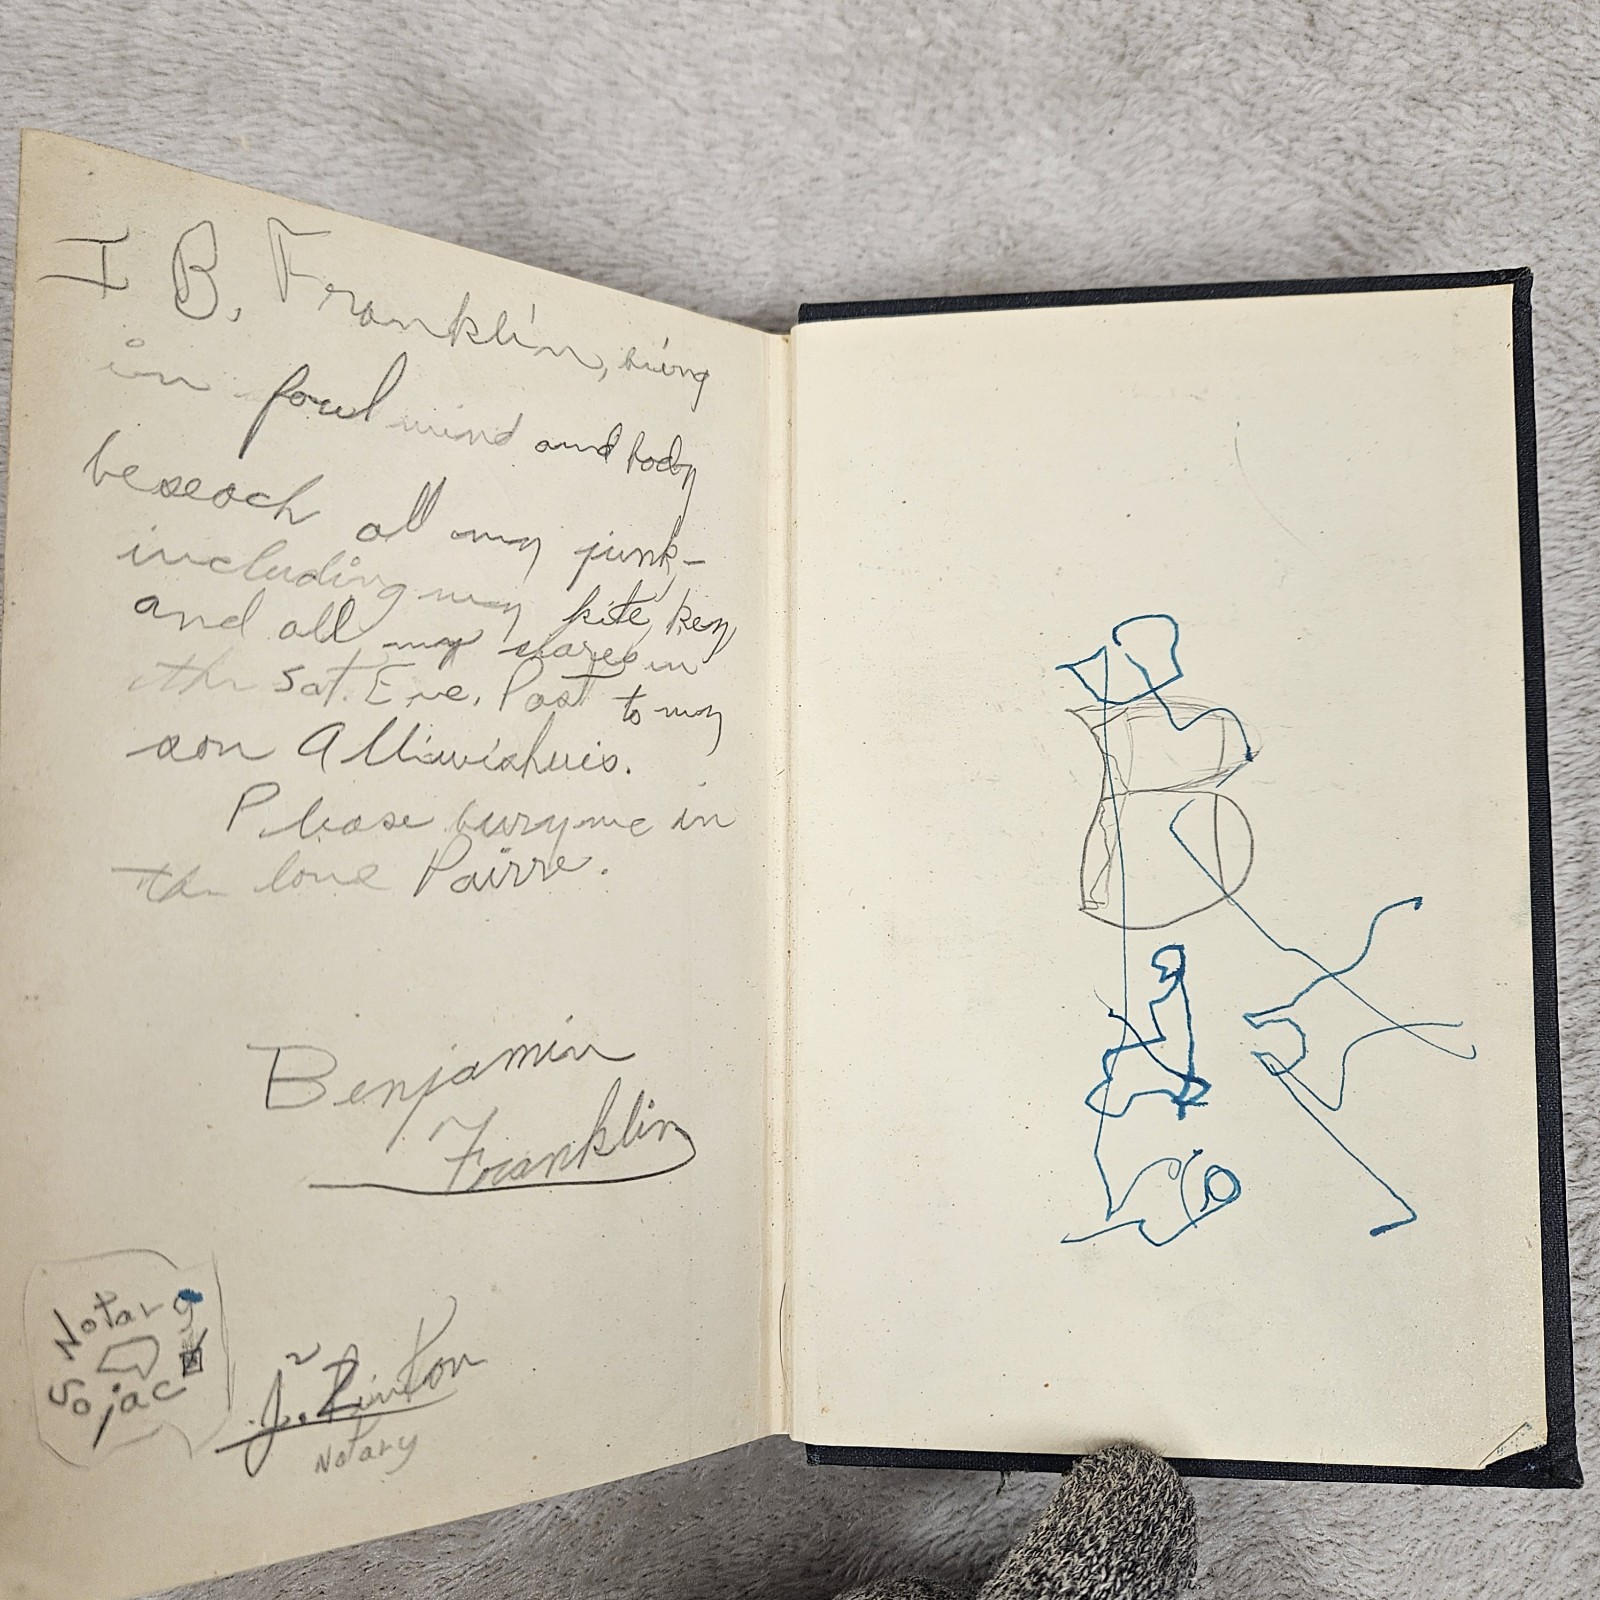 I B. Franklin, being
in fowl mind and body
beseach all my junk-
including my kite, key
and all my shares in
the Sat. Eve. Post to my
son
Please bury me in
the lone Pairre.
Benjamin
Franklin
Notary
Sojac
Notary